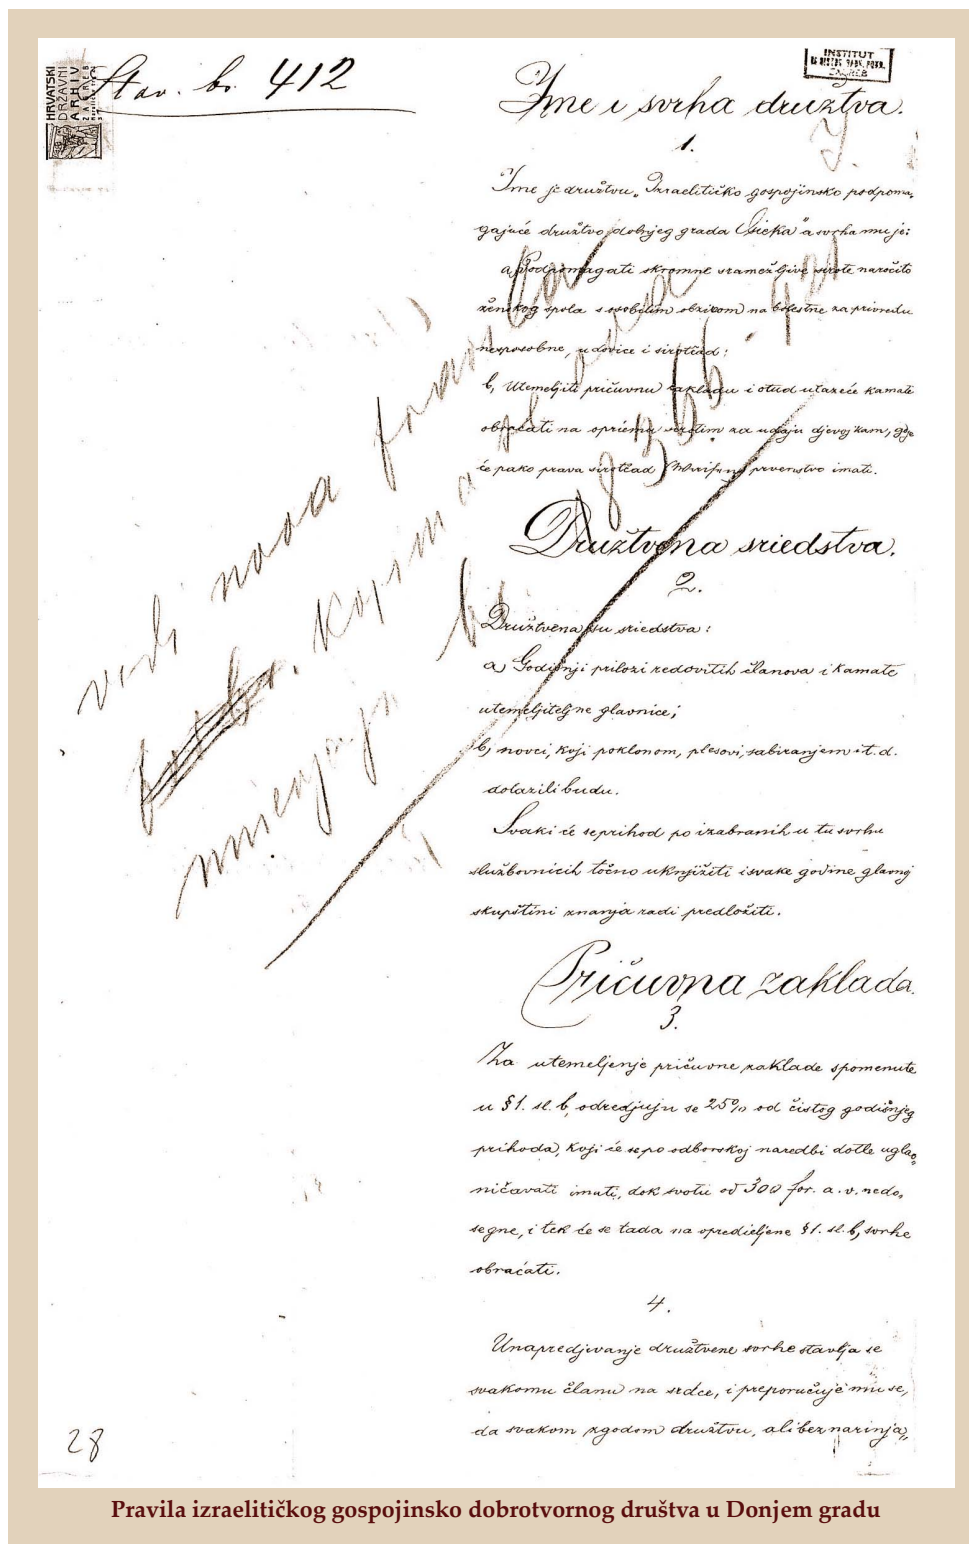 HRVATSKI
DRŽAVNI
ARHIV
ZAGREB
Stav. br. 412
INSTITUT
ZAGREB
Ime i svrha družtva.
1.
Ime je družtvu „Izraelitičko gospojinsko podpoma„
gajuće družtvo dolnjeg grada Osieka" a svrha mu je:
a, Podpomagati skromne sramežljive sirote naročito
ženskog spola s osobitim obzirom na bolestne za privredu
nesposobne, udovice i sirotčad:
b, Utemeljiti pričuvnu zakladu i otud utazeće kamate
obraćati na opriemu sirotim za udaju djevojkam, gdje
će pako prava sirotčad prvenstvo imati.
vidi nova pravila
kojima
mienjaju
Družtvena sriedstva.
2.
Družtvena su sriedstva:
a, Godišnji prilozi redovitih članova i kamate
utemeljiteljne glavnice;
b, novci, koji poklonom, plesovi, sabiranjem i t. d.
dolazili budu.
Svaki će se prihod po izabranih u tu svrhu
službovnicih točno uknjižiti i svake godine glavnoj
skupštini znanja radi predložiti.
Pričuvna zaklada.
3.
Za utemeljenje pričuvne zaklade spomenute
u §1. sl. b, odredjuju se 25% od čistog godišnjeg
prihoda, koji će se po odborskoj naredbi dotle uglav„
ničavati imati, dok svotu od 300 for. a. v. nedo„
segne, i tek će se tada na opredieljene §1. sl. b, svrhe
obraćati.
4.
Unapredjivanje družtvene svrhe stavlja se
svakomu članu na srdce, i preporučuje mu se,
da svakom zgodom družtvu, ali bez narinja„
28
Pravila izraelitičkog gospojinsko dobrotvornog društva u Donjem gradu